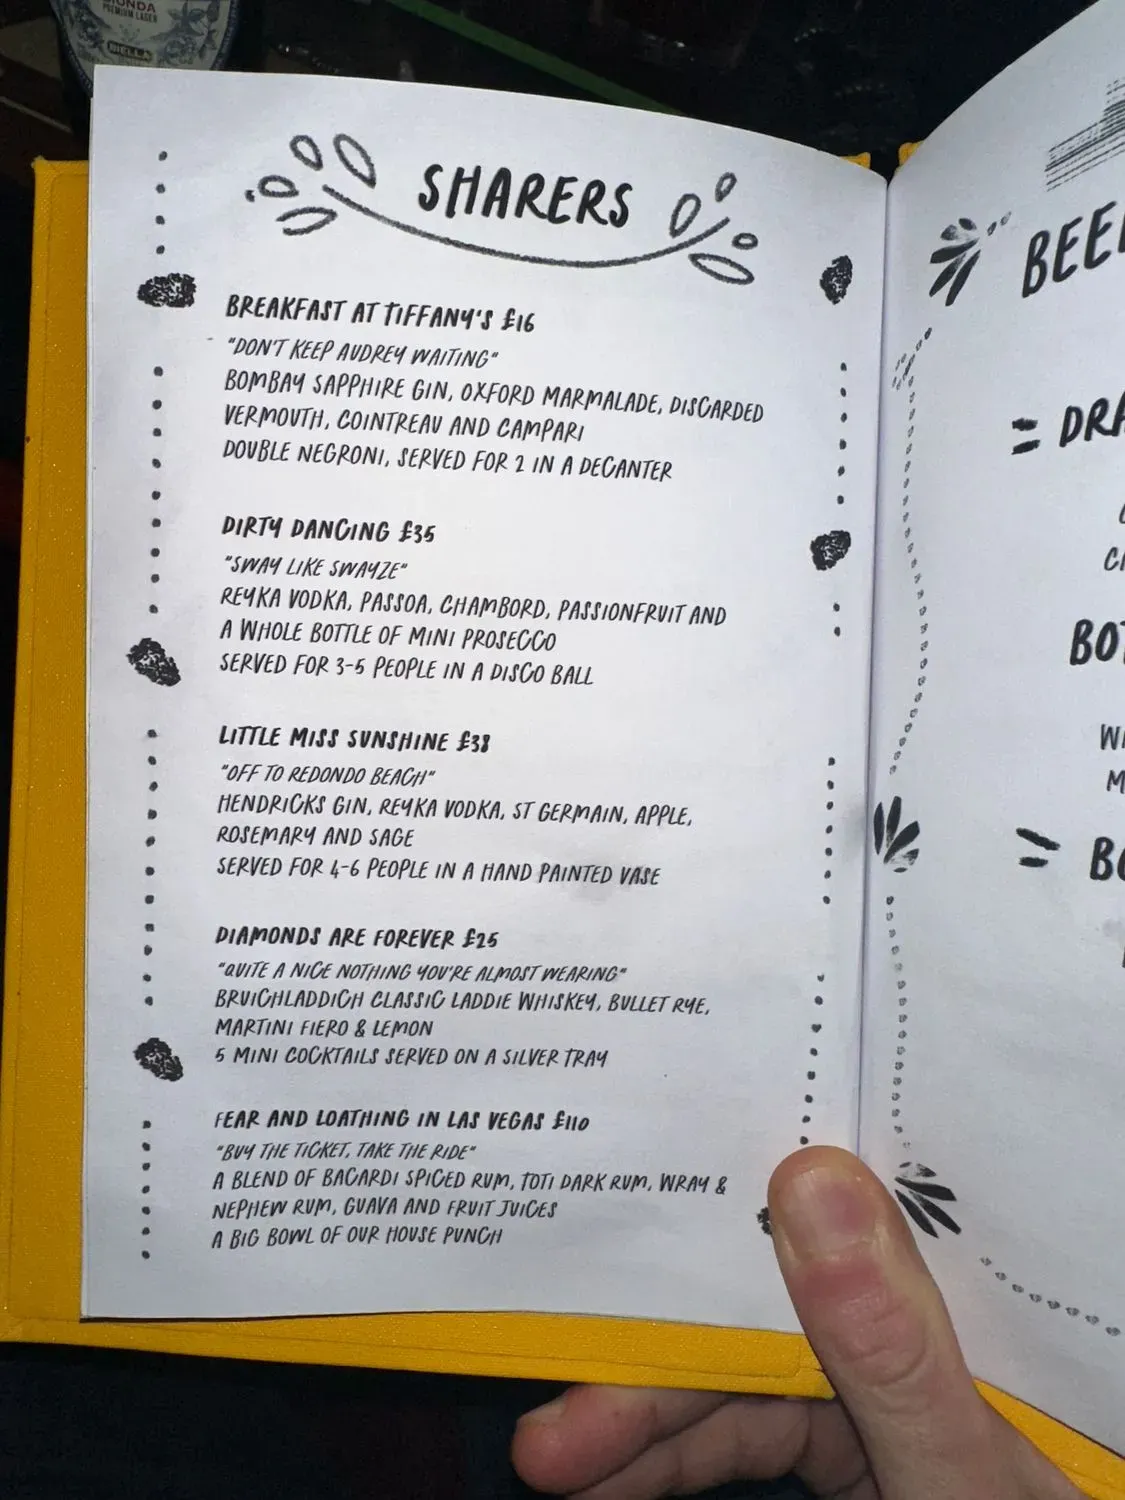 HONDA
PREMIUM LAGER
BIELLA
SHARERS
BREAKFAST AT TIFFANY'S £16
"DON'T KEEP AUDREY WAITING"
BOMBAY SAPPHIRE GIN, OXFORD MARMALADE, DISCARDED
VERMOUTH, COINTREAU AND CAMPARI
DOUBLE NEGRONI, SERVED FOR 2 IN A DECANTER
DIRTY DANCING £35
"SWAY LIKE SWAYZE"
REYKA VODKA, PASSOA, CHAMBORD, PASSIONFRUIT AND
A WHOLE BOTTLE OF MINI PROSECCO
SERVED FOR 3-5 PEOPLE IN A DISCO BALL
LITTLE MISS SUNSHINE £38
"OFF TO REDONDO BEACH"
HENDRICKS GIN, REYKA VODKA, ST GERMAIN, APPLE,
ROSEMARY AND SAGE
SERVED FOR 4-6 PEOPLE IN A HAND PAINTED VASE
DIAMONDS ARE FOREVER £25
"QUITE A NICE NOTHING YOU'RE ALMOST WEARING"
BRUICHLADDICH CLASSIC LADDIE WHISKEY, BULLET RYE,
MARTINI FIERO & LEMON
5 MINI COCKTAILS SERVED ON A SILVER TRAY
FEAR AND LOATHING IN LAS VEGAS £110
"BUY THE TICKET, TAKE THE RIDE"
A BLEND OF BACARDI SPICED RUM, TOTI DARK RUM, WRAY &
NEPHEW RUM, GUAVA AND FRUIT JUICES
A BIG BOWL OF OUR HOUSE PUNCH
BEE
DRA
BOT